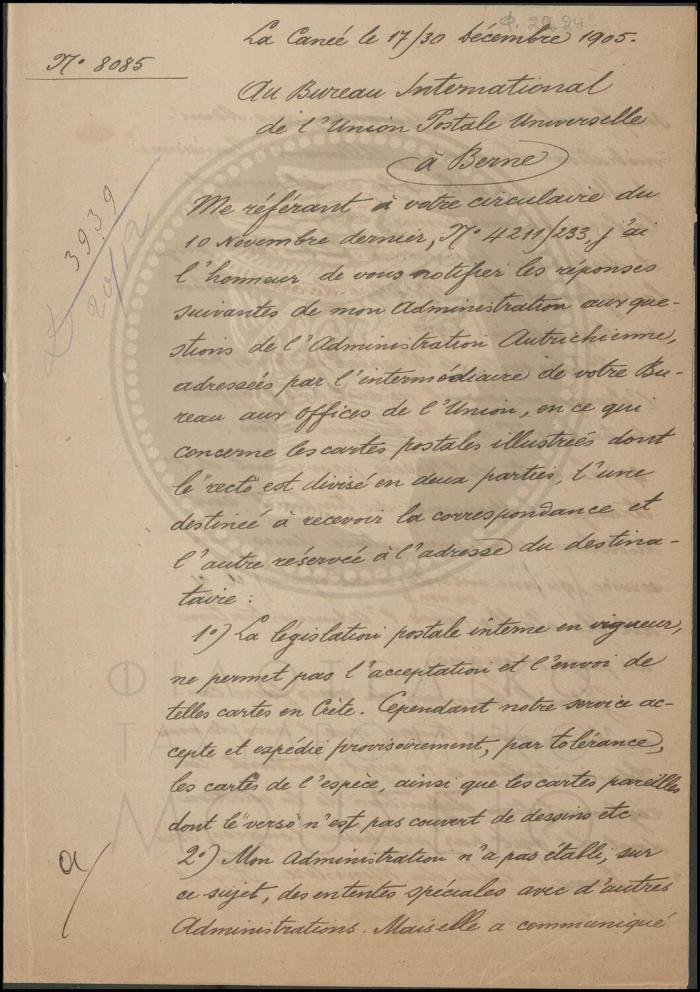 Φ. 29.24
La Caneé le 17/30 Décembre 1905.
Nº 8085
Au Bureau International
de l'Union Postale Universelle
à Berne
3939
20/12
Me référant à votre circulaire du
10 Novembre dernier, Nº 4211/233, j'ai
l'honneur de vous notifier les réponses
suivantes de mon Administration aux que-
stions de l'Administration Autrichienne,
adresseés par l'intermédiaire de votre Bu-
reau aux offices de l'Union, en ce qui
concerne les cartes postales illustreés dont
le "recto" est divisé en deux parties, l'une
destineé à recevoir la correspondance et
l'autre réserveé à l'adresse du destina-
taire:
1º) La législation postale interne en vigueur,
ne permet pas l'acceptation et l'envoi de
telles cartes en Crète. Cependant notre service ac-
cepte et expédie provisoirement, par tolérance,
les cartes de l'espèce, ainsi que les cartes pareilles
dont le "verso" n'est pas couvert de dessins etc.
2º) Mon Administration n'a pas établi, sur
ce sujet, des ententes spéciales avec d'autres
Administrations. Mais elle a communiqué
a/
ΦΙΛΟΤΕΛΙΚΟ
ΤΑΧΥΔΡΟΜΙΚΟ
ΜΟΥΣΕΙΟ